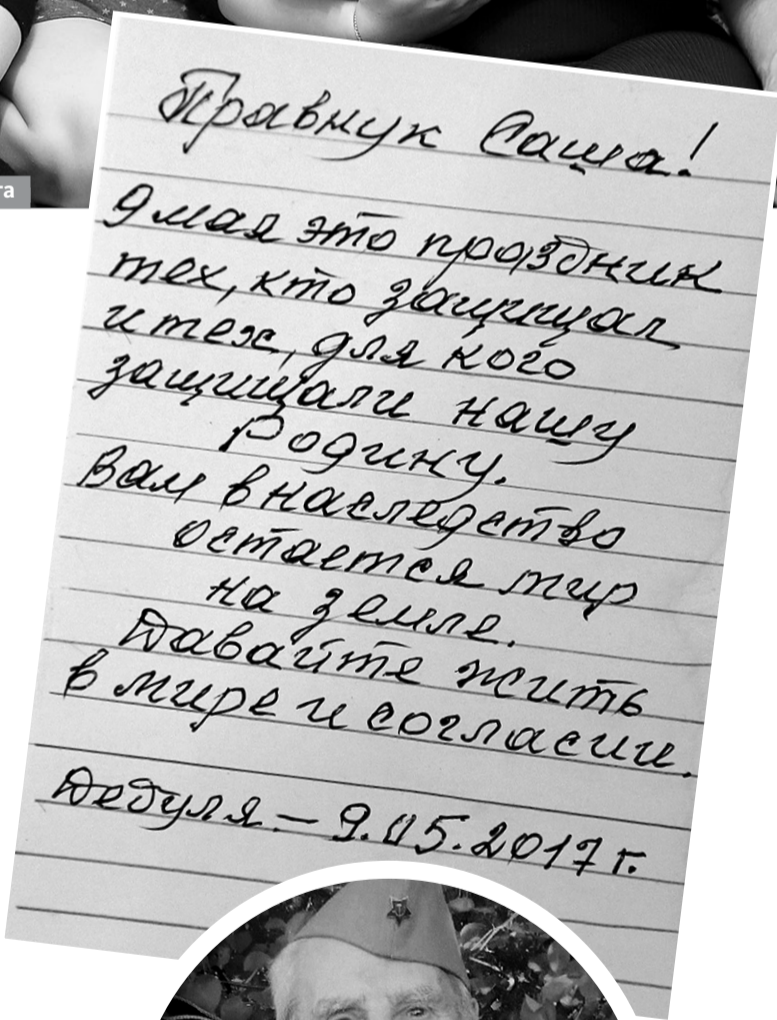 та
Правнук Саша!
9 мая это праздник
тех, кто защищал
и тех, для кого
защищали нашу
Родину.
Вам в наследство
остается мир
на земле.
Давайте жить
в мире и согласии.
Дедуля – 9.05.2017 г.